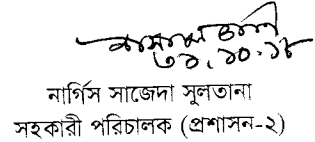 ৩১.১০.১৮
নার্গিস সাজেদা সুলতানা
সহকারী পরিচালক (প্রশাসন-২)